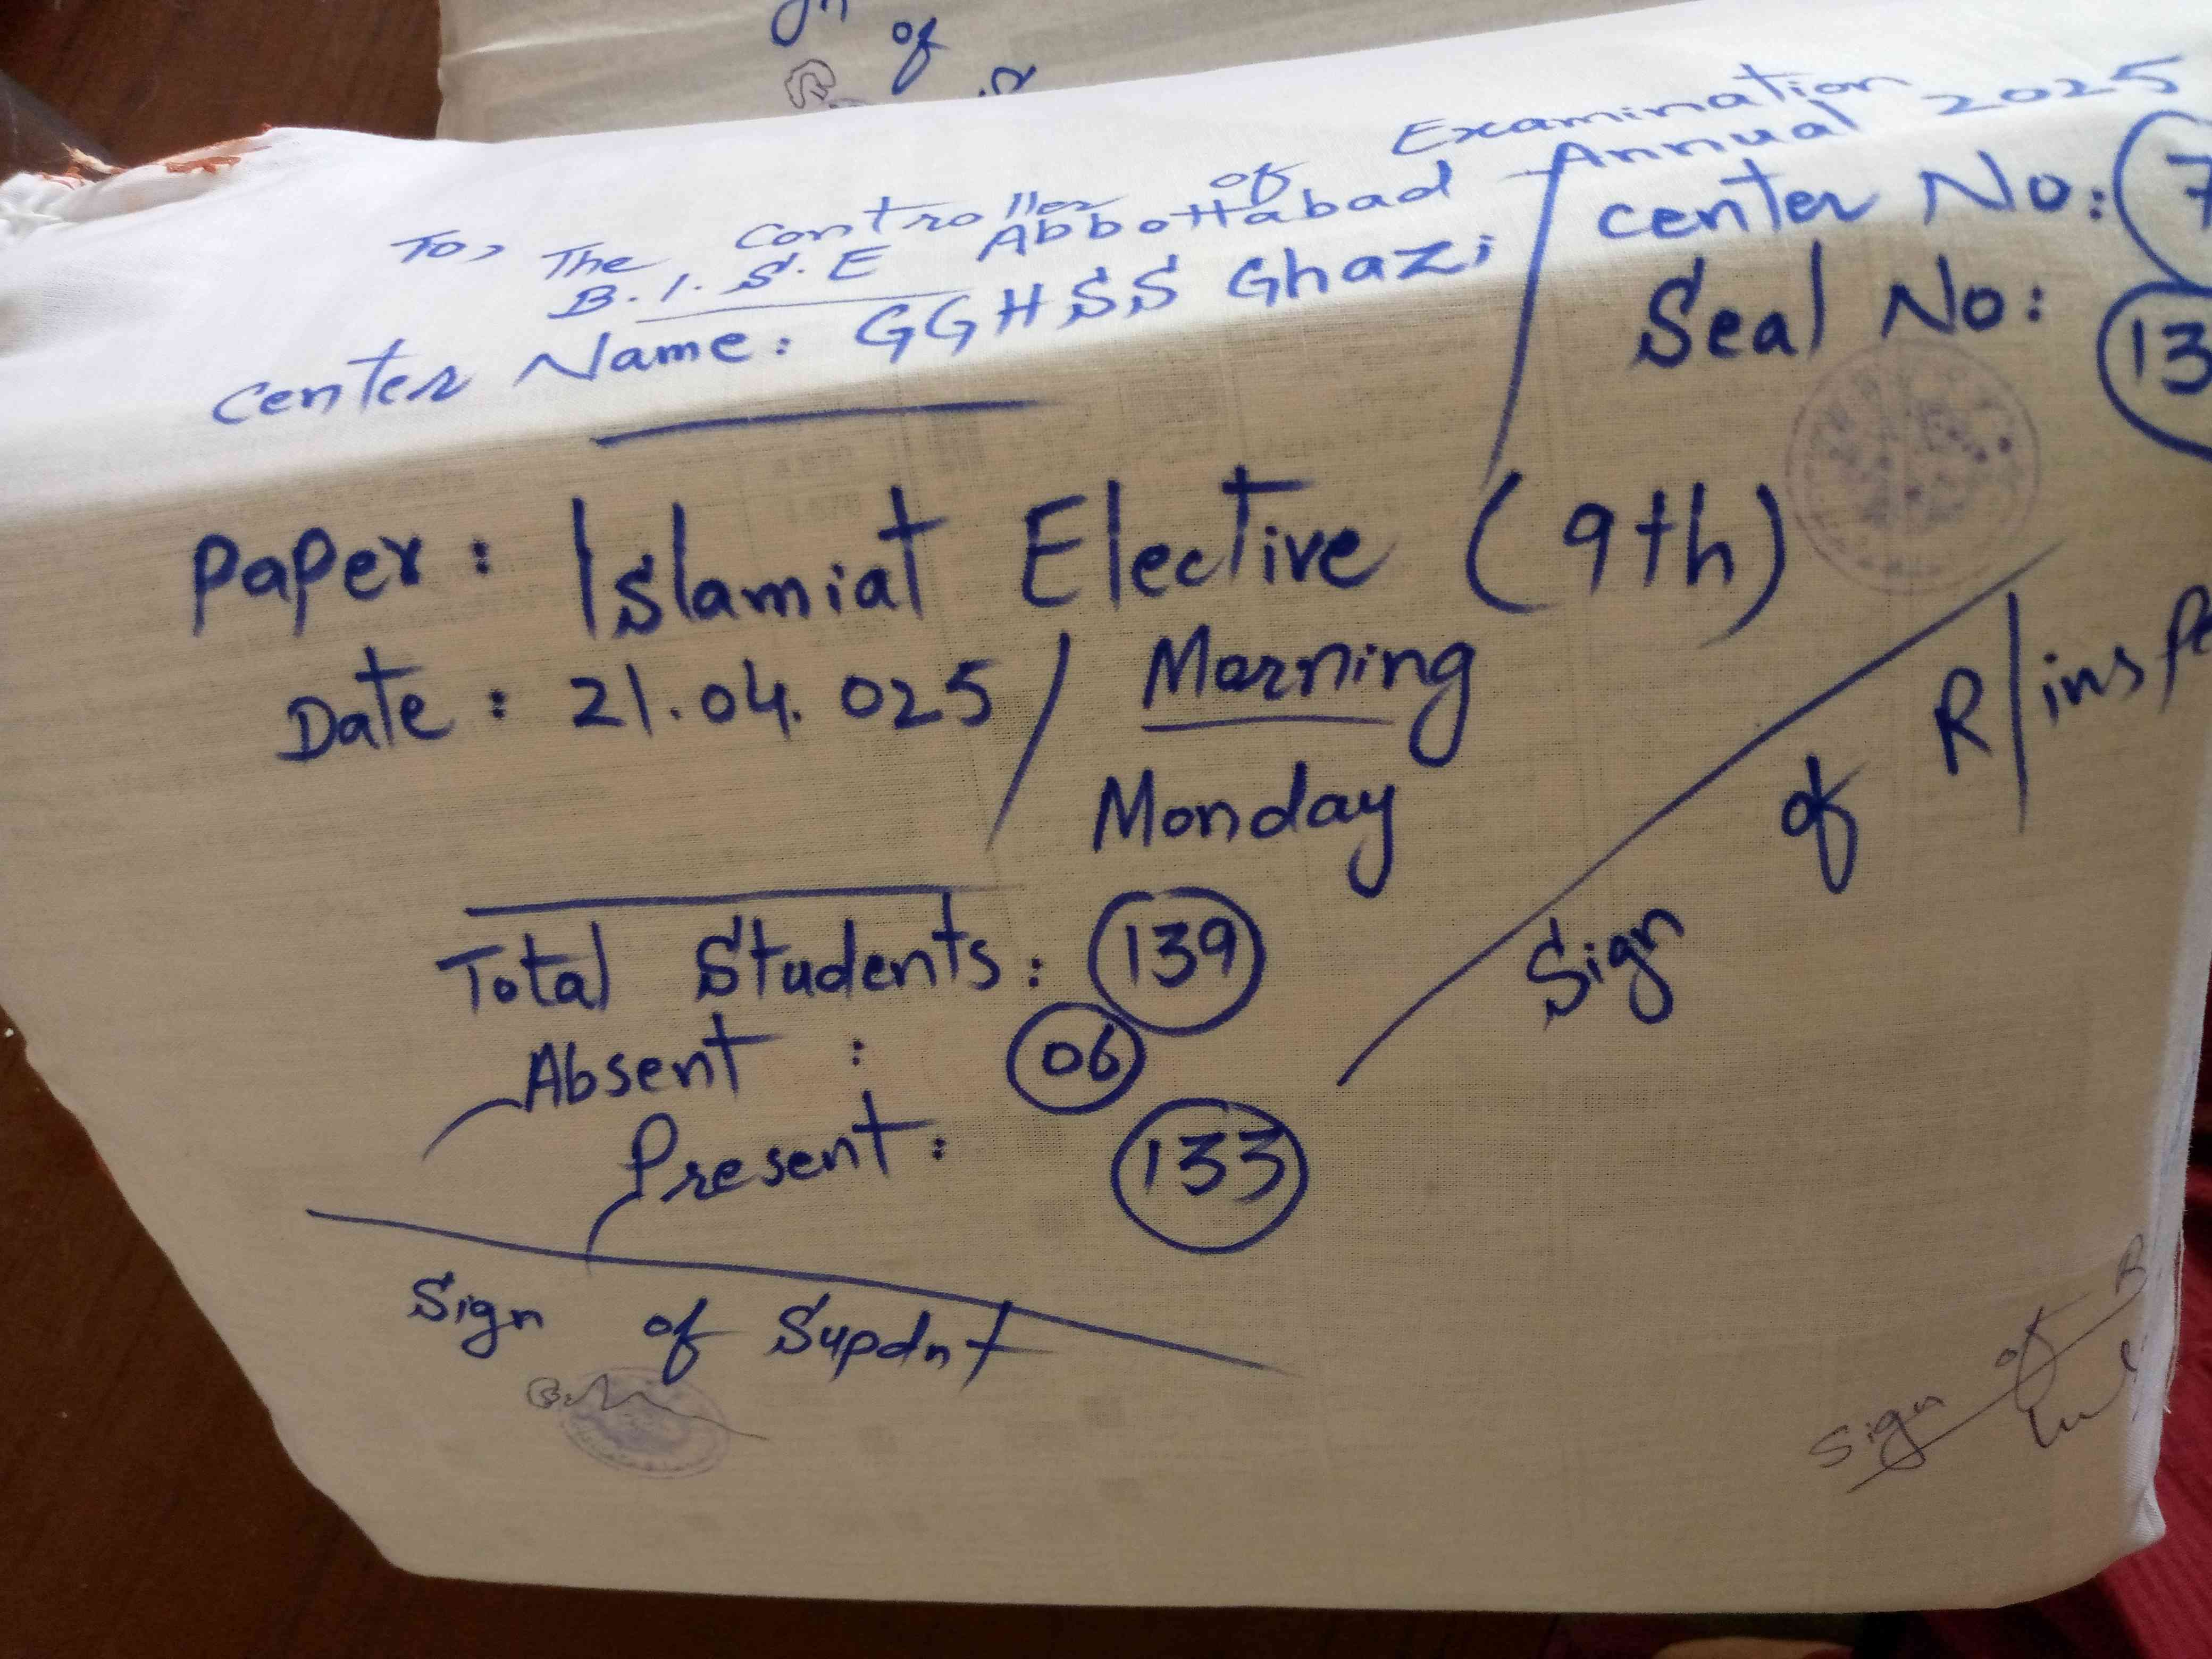 of
To, The Controller of Examination
B.I.S.E Abbottabad Annual 2025
Center Name: GGHSS Ghazi
Center No: 7
Seal No: 13
Paper: Islamiat Elective (9th)
Date: 21.04.025 / Morning
Monday
Total Students: 139
Absent : 06
Present: 133
Sign of R/insp
Sign of Supdnt
Sign of